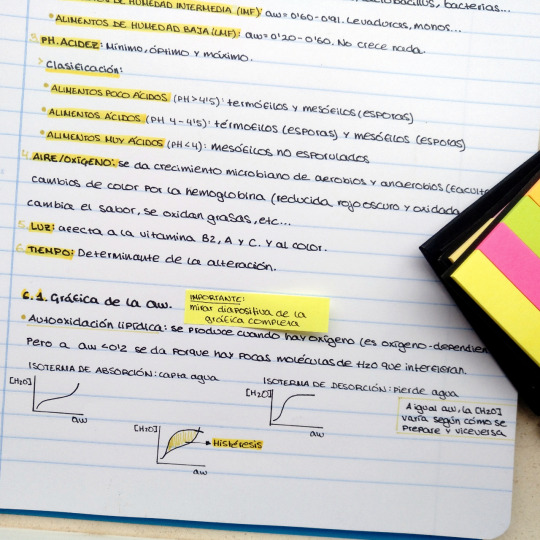 DE HUMEDAD INTERMEDIA (IMF): aw=0'60-0'91. Levaduras, monos...
bacillus, bacterias...
• ALIMENTOS DE HUMEDAD BAJA (LMF): aw=0'20-0'60. No crece nada.
3. PH. ACIDEZ: Mínimo, óptimo y máximo.
> Clasificación:
• ALIMENTOS POCO ÁCIDOS (PH>4'5): termófilos y mesófilos (esporas)
• ALIMENTOS ÁCIDOS (PH 4-4'5): termófilos (esporas) y mesófilos (esporas)
• ALIMENTOS MUY ÁCIDOS (PH<4): mesófilos no esporulados
4. AIRE/OXÍGENO: se da crecimiento microbiano de aerobios y anaerobios (facult
cambios de color por la hemoglobina (reducida rojo oscuro y oxidada
cambia el sabor, se oxidan grasas, etc...
5. LUZ: afecta a la vitamina B2, A y C. Y al color.
6. TIEMPO: Determinante de la alteración.
6.1. Gráfica de la aw.
IMPORTANTE:
mirar diapositiva de la
gráfica completa
• Autooxidación lipídica: se produce cuando hay oxígeno (es oxígeno-dependien
Pero a aw<0'2 se da porque hay pocas moléculas de H2O que interfieran.
ISOTERMA DE ABSORCIÓN: capta agua
ISOTERMA DE DESORCIÓN: pierde agua
[H2O]
aw
[H2O]
aw
A igual aw, la [H2O]
varía según cómo se
prepare y viceversa
[H2O]
aw
Histéresis